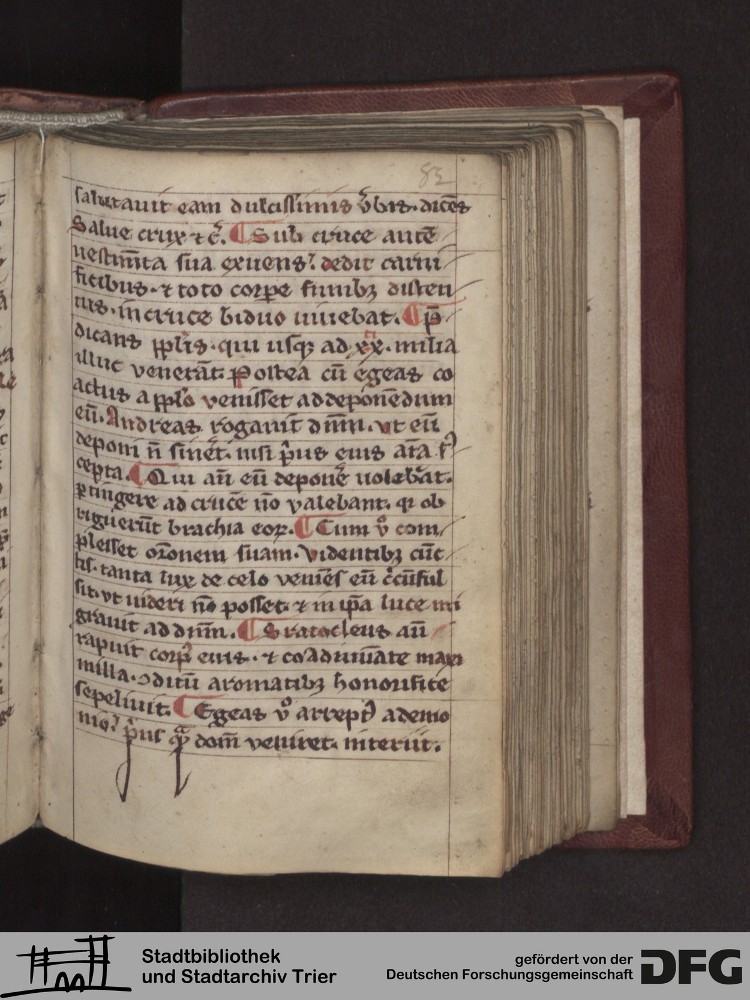 83
salutauit eam dulcissimis v̓bis. dicēs
Salue crux ⁊ c̃. ¶ Sub cruce autē
uestim̄ta sua exuens. dedit carni
ficibus. ⁊ toto corpe funibꝫ disten
tus. in cruce biduo uiuebat. ¶ p̄
dicans pplis. qui usqꝫ ad xx. milia
illuc venerāt. Postea cū egeas co
actus a pplo venisset ad deponēdum
eū. Andreas rogauit dn̄m. vt eū
deponi n̄ sinēt. nisi p̓us eius aīa
cepta. ¶ Qui aū eū deponē uolebāt.
ꝑtingere ad crucē nō valebant. qꝛ ob
riguerūt brachia eoꝝ. ¶ Cum v̓ com
plesset or̄onem suam. videntibꝫ cūc
tis. tanta lux de celo veniēs eū c̓cūful
sit. vt uideri nō posset. ⁊ in ip̄a luce mi
grauit ad dn̄m. ¶ Stratocleus aū
rapuit corp̓ eius. ⁊ co adiuuāte maxi
milla. ꝯditū aromatibꝫ honorifice
sepeliuit. ¶ Egeas v̓ arrept̓ a demo
nio. p̓us qᷓ̄ domū veniret. interiit.
Stadtbibliothek
und Stadtarchiv Trier
gefördert von der
Deutschen Forschungsgemeinschaft
DFG